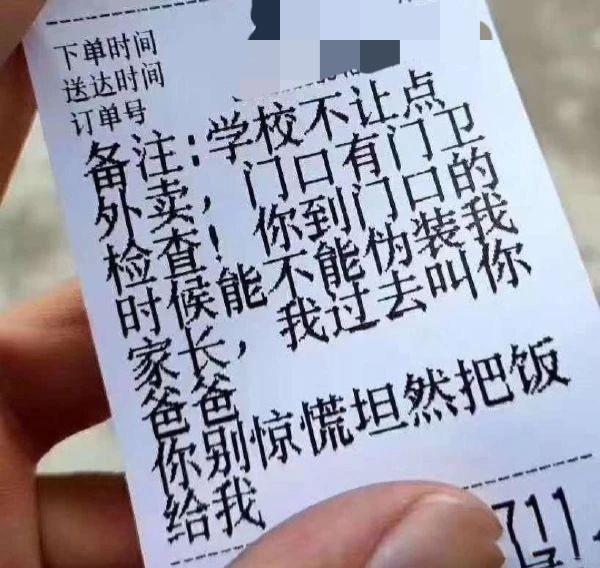 下单时间
送达时间
订单号
备注:学校不让点
外卖，门口有门卫
检查！你到门口的
时候能不能伪装我
家长，我过去叫你
爸爸
你别惊慌坦然把饭
给我
711